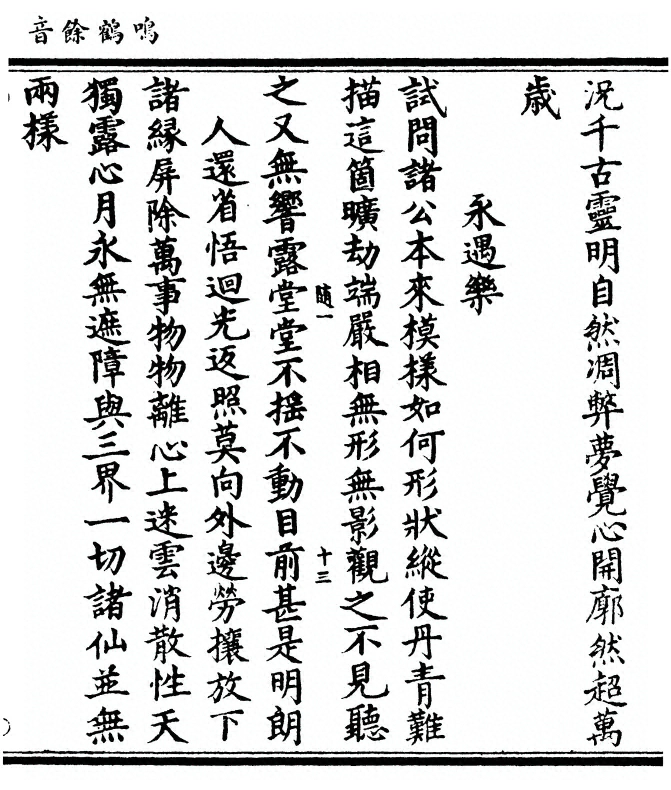 鳴鶴餘音
況千古靈明自然凋弊夢覺心開廓然超萬
歲
永遇樂
試問諸公本來模樣如何形狀縱使丹青難
描這箇曠劫端嚴相無形無影觀之不見聽
之又無響露堂堂不搖不動目前甚是明朗
隨一
十三
人還省悟迴光返照莫向外邊勞攘放下
諸緣屏除萬事物物離心上迷雲消散性天
獨露心月永無遮障與三界一切諸仙並無
兩樣